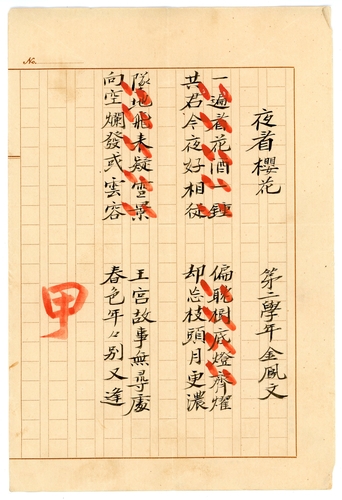 No.
夜看櫻花
第二學年金鳳文
一遍看花酒一鍾
共君今夜好相從
偏耽樹底燈齊燿
却忘枝頭月更濃
墜地飛来疑雪景
向空爛發或雲容
王宮故事無尋處
春色年々別又逢
甲